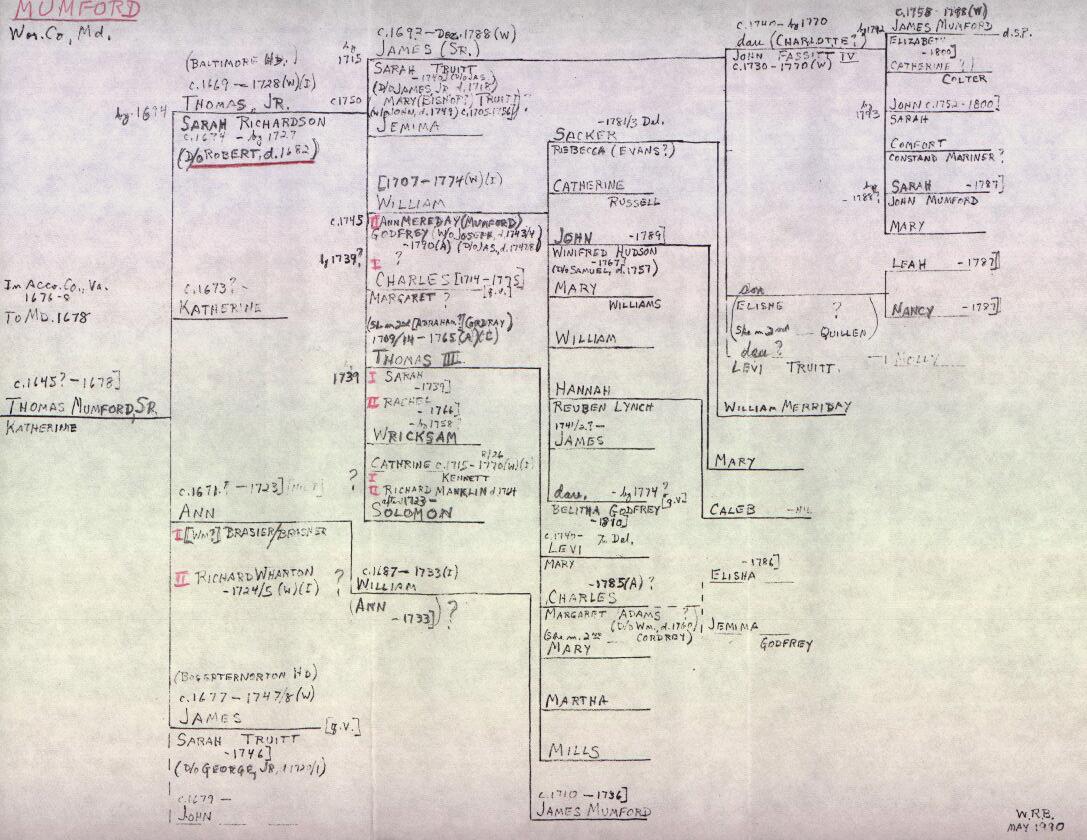 MUMFORD
Wor. Co, Md.
In Acco. Co., Va.
1676-8
To MD. 1678
c.1645? - 1678]
THOMAS MUMFORD, SR
KATHERINE
(BALTIMORE HD.)
c.1669 - 1728(W)(I)
by 1694
THOMAS, JR.
SARAH RICHARDSON
c.1674 - by 1727
(D/O ROBERT, d.1682)
c.1673? -
KATHERINE
c.1671? - 1723]
ANN
I [Wm?] BRASIER/BRASHER
II RICHARD WHARTON
- 1724/5 (W)(I)
(BOGERTERNORTON HD)
c.1677 - 1747/8(W)
JAMES
[q.v.]
SARAH TRUITT
- 1746]
(D/O GEORGE, JR,
c.1679 -
JOHN
c.1692 - Dec. 1788(W)
by 1715
JAMES (SR.)
SARAH TRUITT
(D/O JAMES JR d.1718)
c1750
MARY (BISHOP?) TRUITT
JEMIMA
[1707-1774(W)(I)
WILLIAM
c.1745
II ANN MEREDAY (MUMFORD)
GODFREY (W/O JOSEPH, d.1743/4
-1790(A)
by 1739?
I ?
CHARLES [1714-1775]
[q.v.]
MARGARET ?
(She m 2nd [ABRAHAM?] CORDRAY)
1709/14 - 1765(A)(C)
THOMAS III
1739
I SARAH
- 1739]
II RACHEL
- 1766]
- by 1758?
WRICKSAM
8/26
CATHRINE c.1715-1770(W)(I)
I KENNETT
?
II RICHARD MANKLIN d 1764
after 1723 -
SOLOMON
c.1687 - 1733(I)
?
WILLIAM
(ANN
- 1733]) ?
-1781/3 Del.
SACKER
REBECCA (EVANS?)
CATHERINE
RUSSELL
JOHN -1789]
WINIFRED HUDSON
-1767]
(D/O SAMUEL, d.1757)
MARY
WILLIAMS
WILLIAM
HANNAH
REUBEN LYNCH
1741/2? -
JAMES
dau. - by 1774?
BELITHA GODFREY [q.v]
-1810]
c.1740- To Del.
LEVI
MARY
-1785(A) ?
CHARLES
MARGARET ADAMS ?
(D/O Wm, d.1760)
(She m. 2nd CORDREY)
MARY
MARTHA
MILLS
c.1710 - 1736]
JAMES MUMFORD
c.1740 - by 1770
dau (CHARLOTTE?)
JOHN FASSITT IV
c.1730 - 1770(W)
son
(ELISHE ?
(She m 2nd QUILLEN)
dau ?
LEVI TRUITT
MOLLY
WILLIAM MERRIDAY
MARY
CALEB
-1786]
ELISHA
JEMIMA
GODFREY
c.1758 - 1798(W)
by 1792
JAMES MUMFORD d.s.p.
ELIZABETH
- 1800]
CATHERINE ?
COLTER
by 1793
JOHN c.1752-1800]
SARAH
COMFORT
CONSTAND MARINER?
by 1788?
SARAH -1787]
JOHN MUMFORD
MARY
LEAH -1787]
NANCY -1787]
W.R.B.
MAY 1990